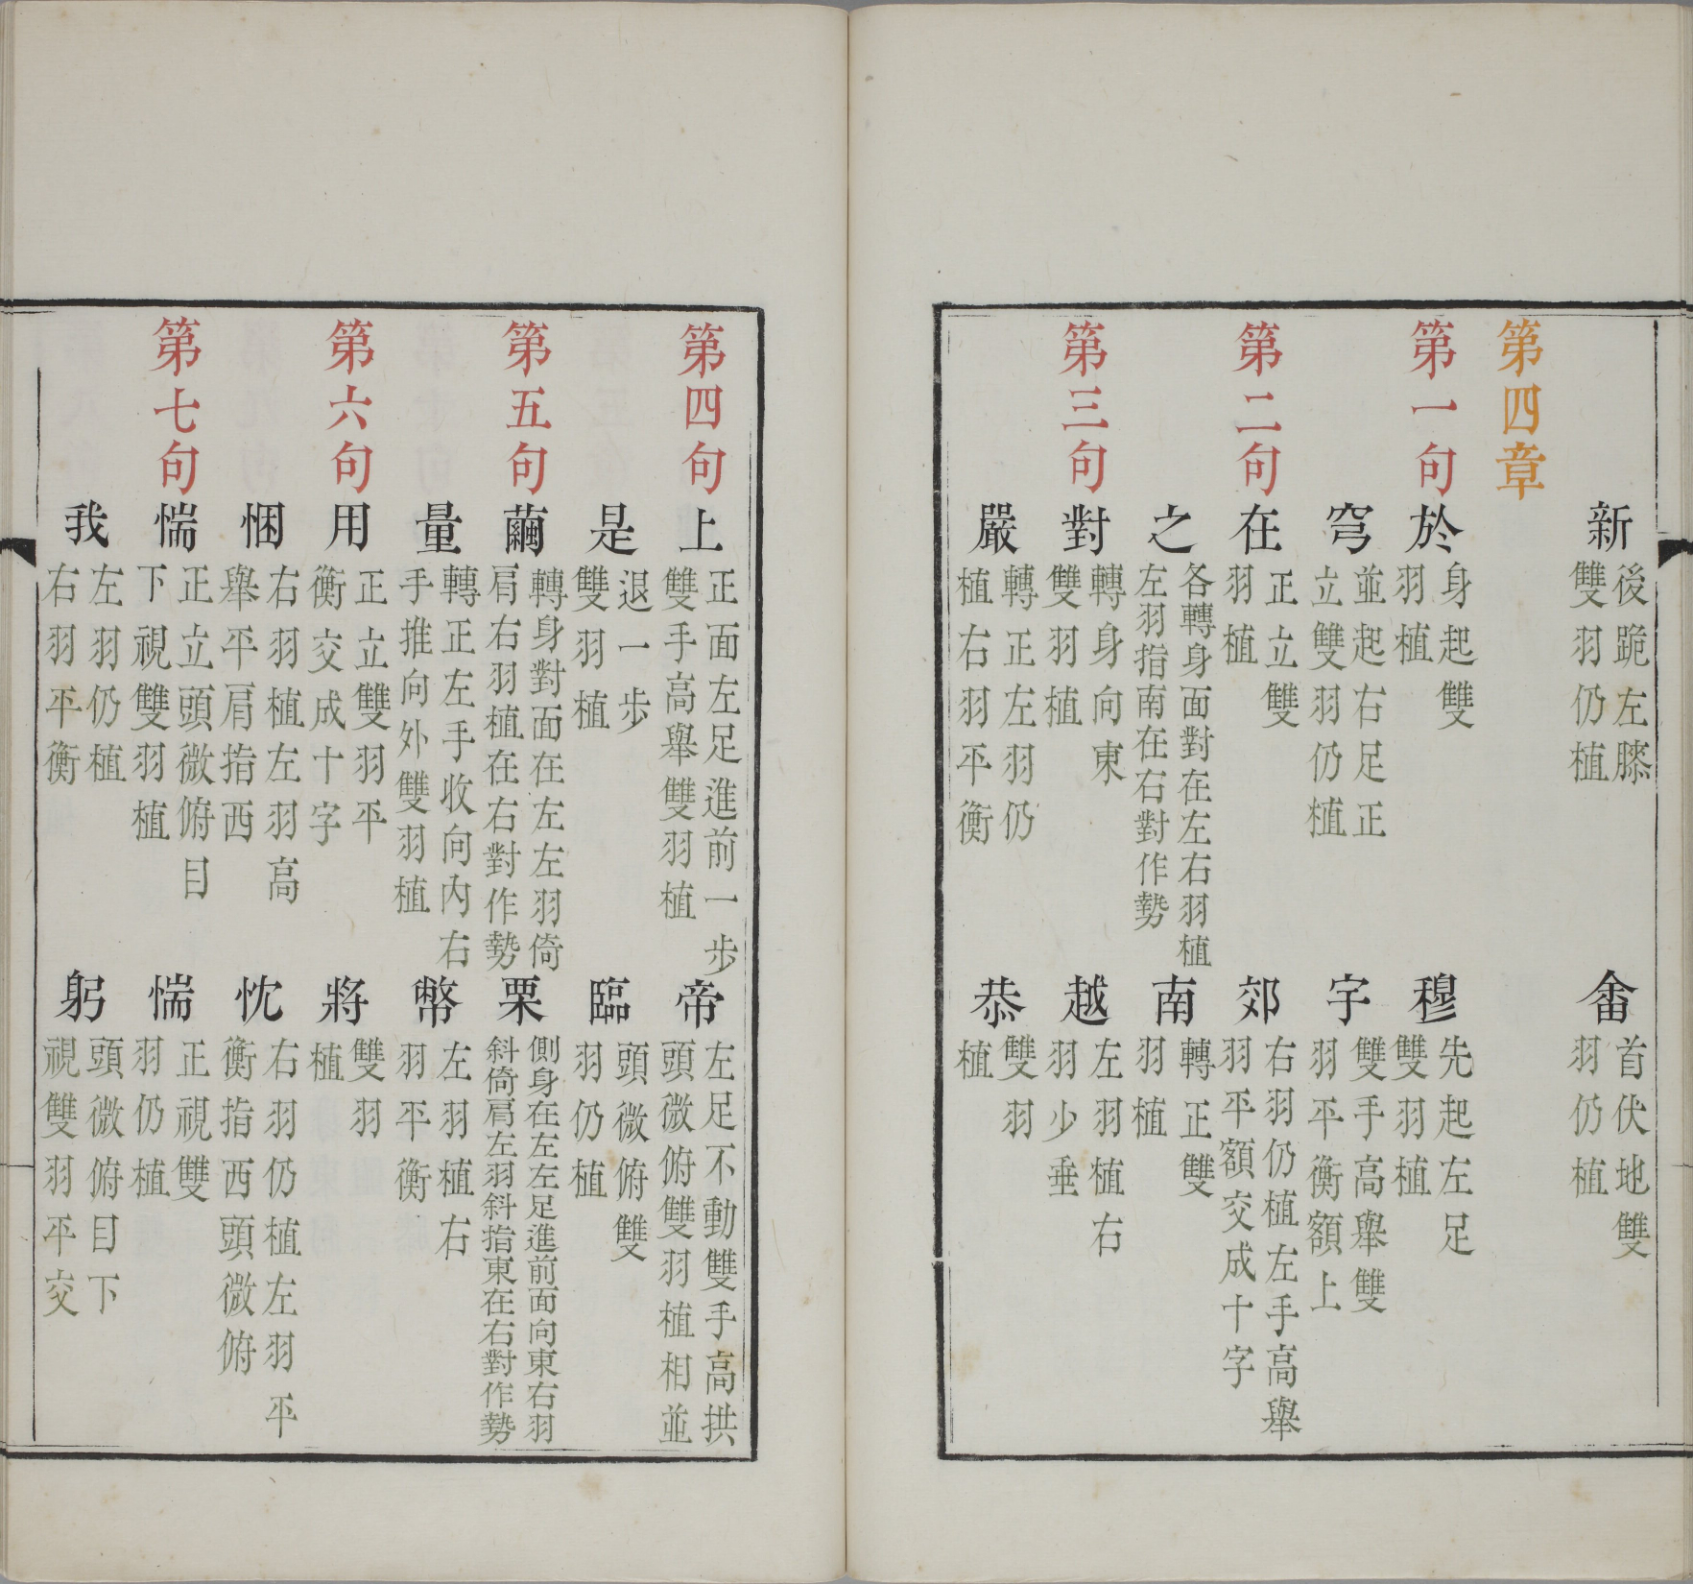 新後跪左膝雙羽仍植
畬首伏地雙羽仍植
第四章
第一句
於身起雙羽植
穆先起左足雙羽植
穹並起右足正立雙羽仍植
宇雙手高舉雙羽平衡額上
第二句
在正立雙羽植
郊右羽仍植左手高舉羽平額交成十字
之各轉身面對在左右羽植左羽指南在右對作勢
南轉正雙羽植
第三句
對轉身向東雙羽植
越左羽植右羽少垂
嚴轉正左羽仍植右羽平衡
恭雙羽植
第四句
上正面左足進前一步雙手高舉雙羽植
帝左足不動雙手高拱頭微俯雙羽植相並
是退一步雙羽植
臨頭微俯雙羽仍植
第五句
繭轉身對面在左左羽倚肩右羽植在右對作勢
栗側身在左左足進前面向東右羽斜倚肩左羽斜指東在右對作勢
量轉正左手收向內右手推向外雙羽植
幣左羽植右羽平衡
第六句
用正立雙羽平衡交成十字
將雙羽植
悃右羽植左羽高舉平肩指西
忱右羽仍植左羽平衡指西頭微俯
第七句
惴正立頭微俯目下視雙羽植
惴正視雙羽仍植
我左羽仍植右羽平衡
躬頭微俯目下視雙羽平交